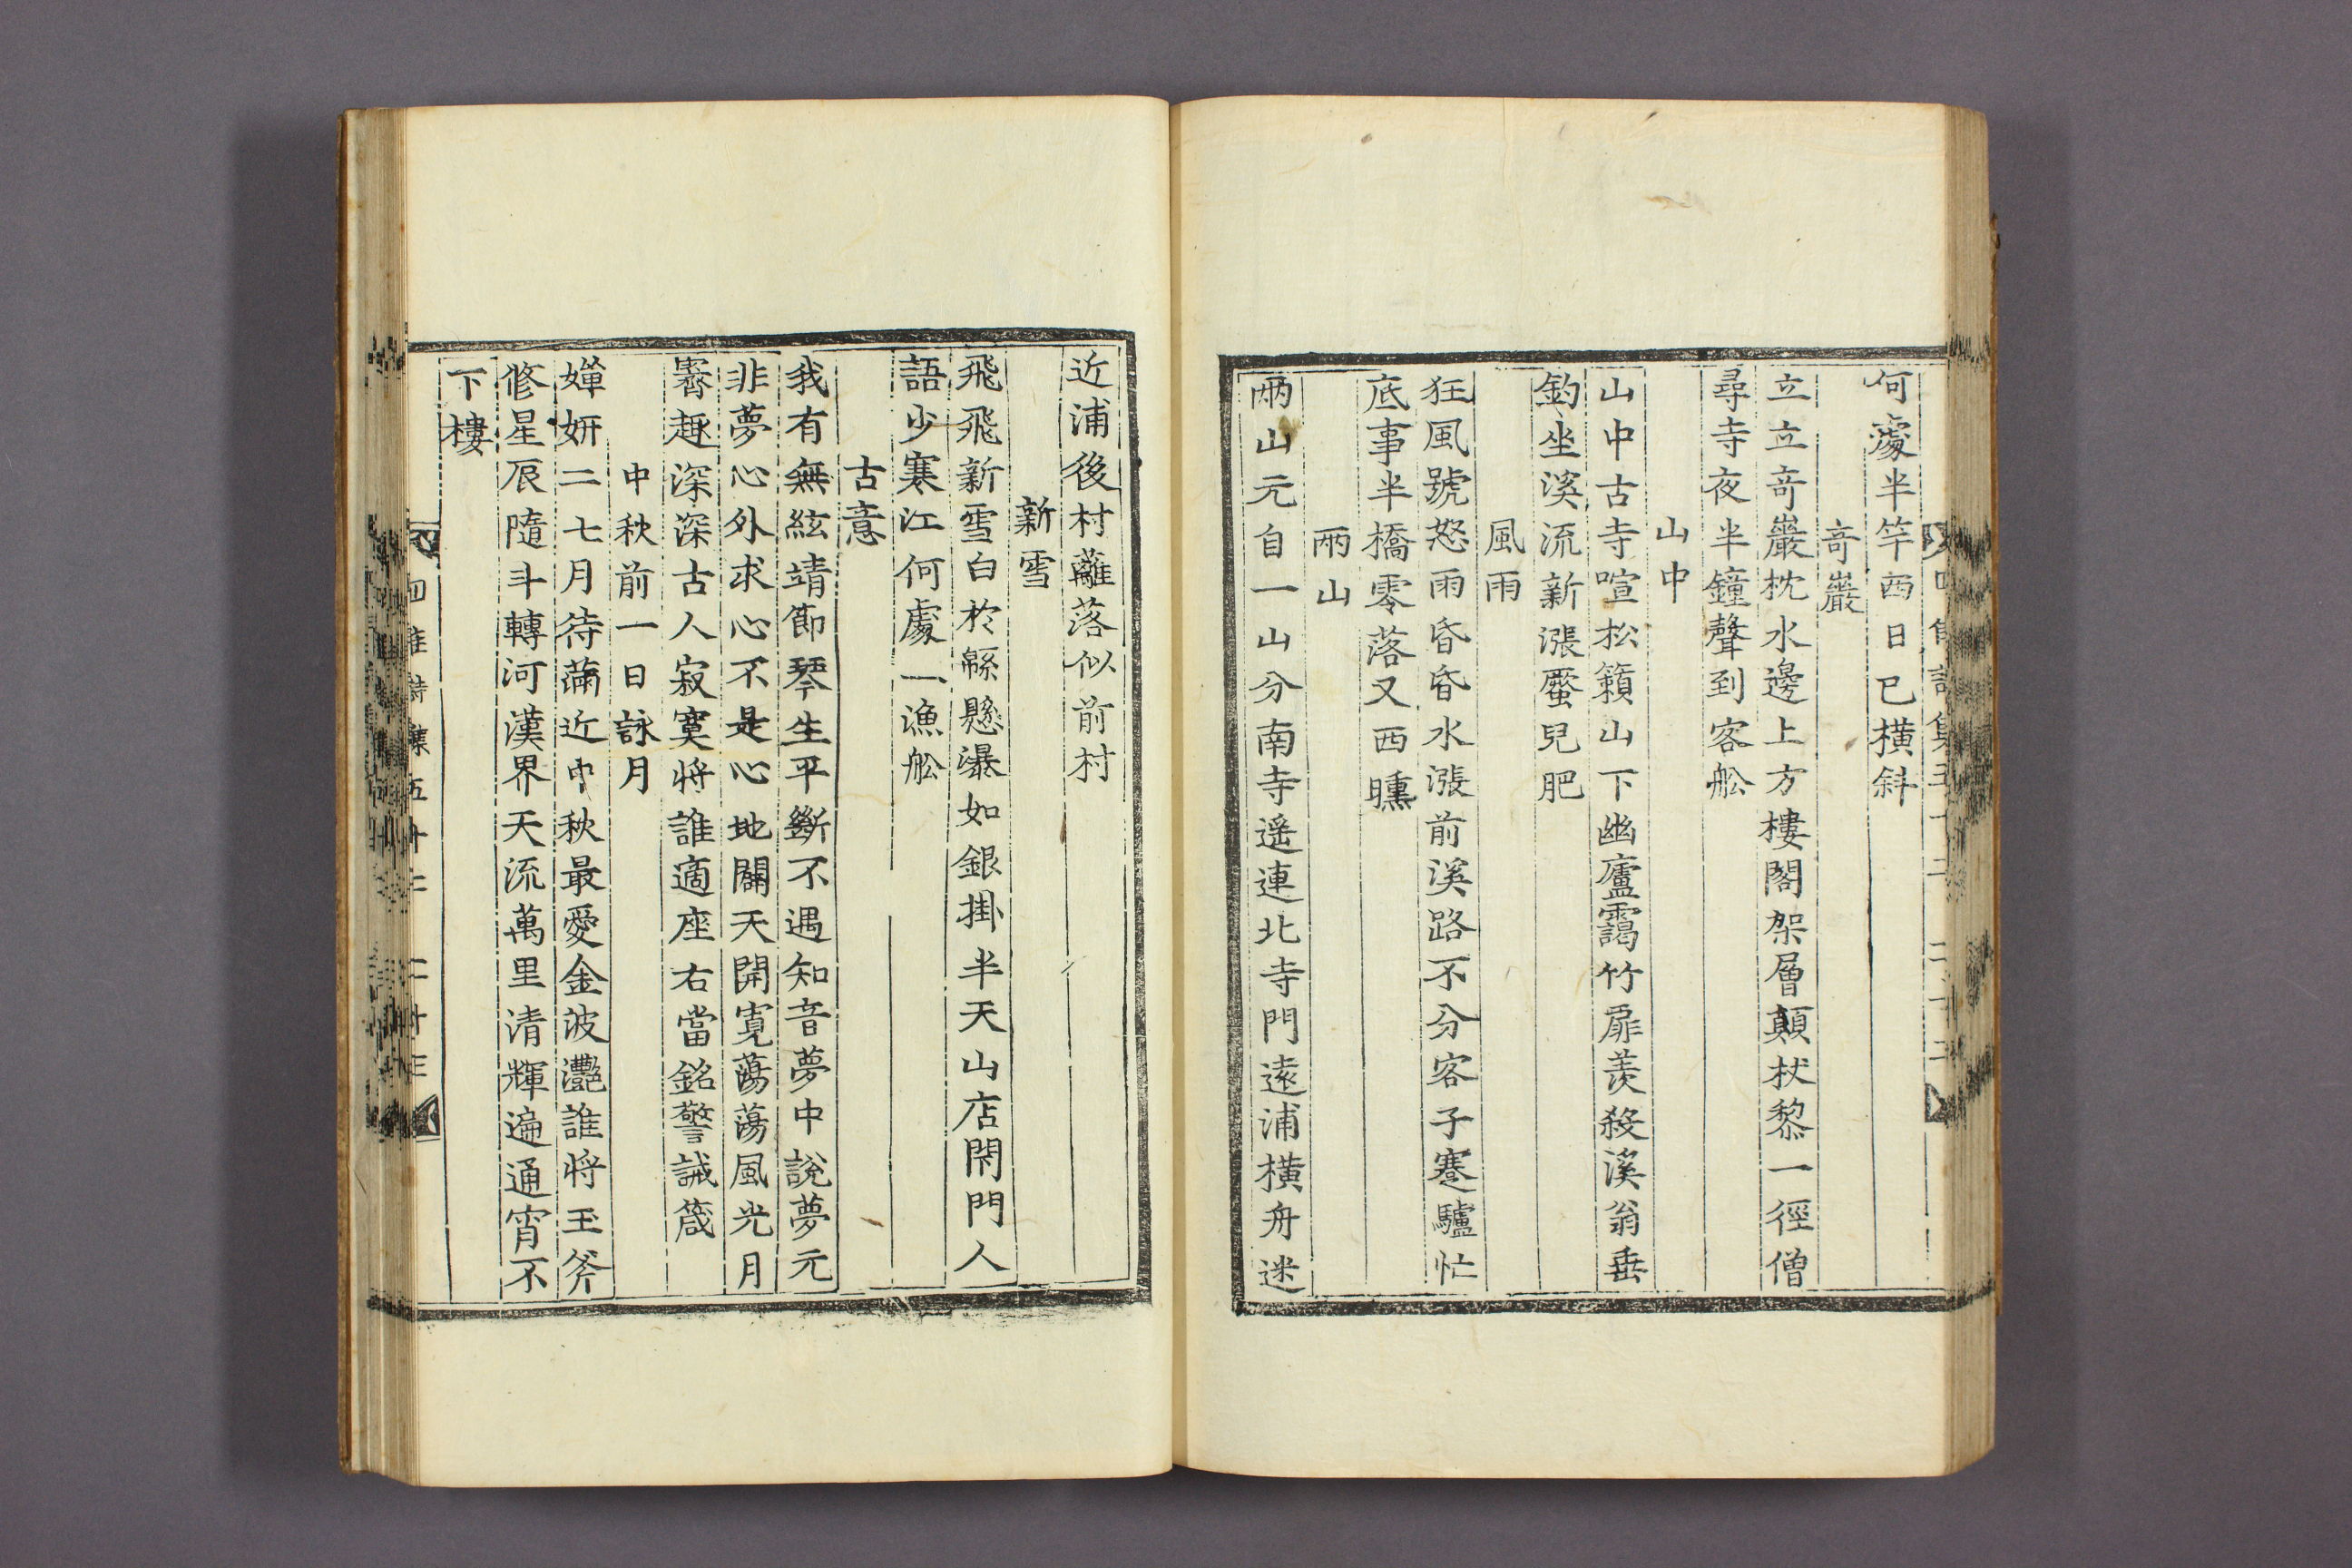 何處半竿西日已橫斜
竒巖
立立竒巖枕水邊上方樓閣架層顛杖黎一徑僧
尋寺夜半鐘聲到客舩
山中
山中古寺喧松籟山下幽廬靄竹扉羨殺溪翁垂
釣坐溪流新漲蟹兒肥
風雨
狂風號怒雨昏昏水漲前溪路不分客子蹇驢忙
底事半橋零落又西曛
兩山
兩山元自一山分南寺遥連北寺門遠浦橫舟迷
近浦後村蘺落似前村
新雪
飛飛新雪白於緜懸瀑如銀掛半天山店閉門人
語少寒江何處一漁舩
古意
我有無絃靖節琴生平斷不遇知音夢中說夢元
非夢心外求心不是心地闢天開寛蕩蕩風光月
霽趣深深古人寂寞將誰適座右當銘警誡箴
中秋前一日詠月
嬋姸二七月待滿近中秋最愛金波灔誰將玉斧
修星辰隨斗轉河漢界天流萬里清輝遍通宵不
下樓
四佳詩集五十二 二十三